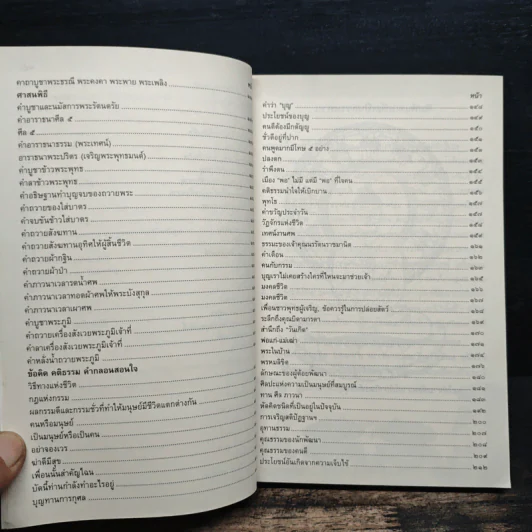 คาถาบูชาพระธรณี พระคงคา พระพาย พระเพลิง
ศาสนพิธี
คำบูชาและนมัสการพระรัตนตรัย
คำอาราธนาศีล ๕
ศีล ๕
คำอาราธนาธรรม (พระเทศน์)
อาราธนาพระปริตร (เจริญพระพุทธมนต์)
คำบูชาข้าวพระพุทธ
คำลาข้าวพระพุทธ
คำอธิษฐานทำบุญจบของถวายพระ
คำถวายของใส่บาตร
คำจบขันข้าวใส่บาตร
คำถวายสังฆทาน
คำถวายสังฆทานอุทิศให้ผู้สิ้นชีวิต
คำถวายผ้ากฐิน
คำถวายผ้าป่า
คำภาวนาเวลารดน้ำศพ
คำภาวนาเวลาทอดผ้าศพให้พระบังสุกุล
คำภาวนาเวลาเผาศพ
คำบูชาพระภูมิ
คำถวายเครื่องสังเวยพระภูมิเจ้าที่
คำลาเครื่องสังเวยพระภูมิเจ้าที่
คำหลั่งน้ำถวายพระภูมิ
ข้อคิด คติธรรม คำกลอนสอนใจ
วิธีทางแห่งชีวิต
กฎแห่งกรรม
ผลกรรมดีและกรรมชั่วที่ทำให้มนุษย์มีชีวิตแตกต่างกัน
คนหรือมนุษย์
เป็นมนุษย์หรือเป็นคน
อย่าจองเวร
ฆ่าดีมีสุข
เพื่อนนั้นสำคัญไฉน
บัดนี้ท่านกำลังทำอะไรอยู่
บุญทานการกุศล
หน้า
คำว่า "บุญ" ๑๔๘
ประโยชน์ของบุญ ๑๔๙
คนดีต้องมีกตัญญู ๑๕๐
ชั่วดีอยู่ที่ปาก ๑๕๑
คนพูดมากมีโทษ ๕ อย่าง ๑๕๒
ปลงตก ๑๕๓
รำพึงตน ๑๕๔
เมือง "พอ" ไม่มี แต่มี "พอ" ที่ใจตน
คติธรรมนำใจให้เบิกบาน
พุทโธ
คำขวัญประจำวัน
วัฏจักรแห่งชีวิต
เทศน์งานศพ ๑๕๙
ธรรมะของเจ้าคุณนรรัตนราชมานิต ๑๖๑
คำเตือน
คนกับกรรม ๑๖๓
บุญเราไม่เคยสร้างใครที่ไหนจะมาช่วยเจ้า
มงคลชีวิต ๑๖๕
มงคลชีวิต ๑๖๗
เพื่อนชาวพุทธผู้เจริญ, ข้อควรรู้ในการปล่อยสัตว์
ระลึกถึงคุณบิดามารดา
สำนึกถึง "วันเกิด"
พ่อแก่-แม่เฒ่า
พระในบ้าน
พรหมลิขิต
ลักษณะของผู้ต้องพัฒนา ๑๘๐
ศิลปะแห่งความเป็นมนุษย์ที่สมบูรณ์
ทาน ศีล ภาวนา
ทัสคิตชนิดที่เป็นอยู่ในปัจจุบัน
การเจริญสติปัฏฐานฯ ๒๐๐
อุทานธรรม ๒๐๗
คุณธรรมของนักพัฒนา ๒๐๘
คุณธรรมของคนดี ๒๐๙
ประโยชน์อันเกิดจากความเจ็บไข้ ๒๑๒